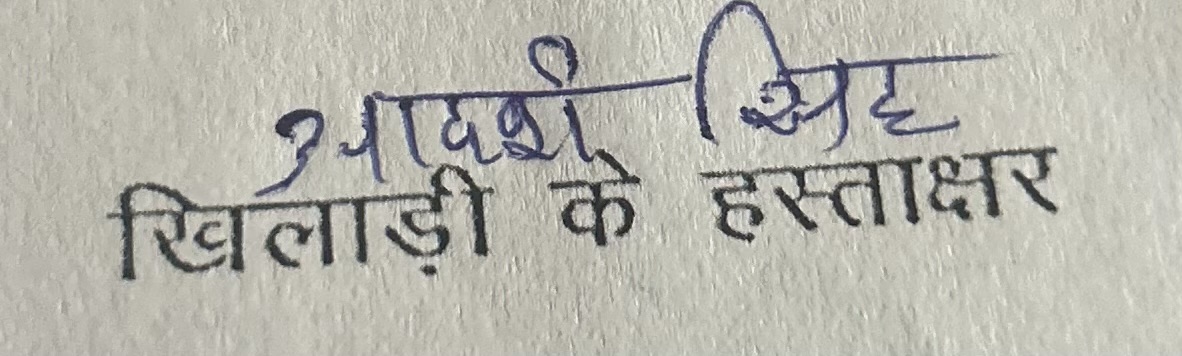 आदर्श सिह
खिलाड़ी के हस्ताक्षर